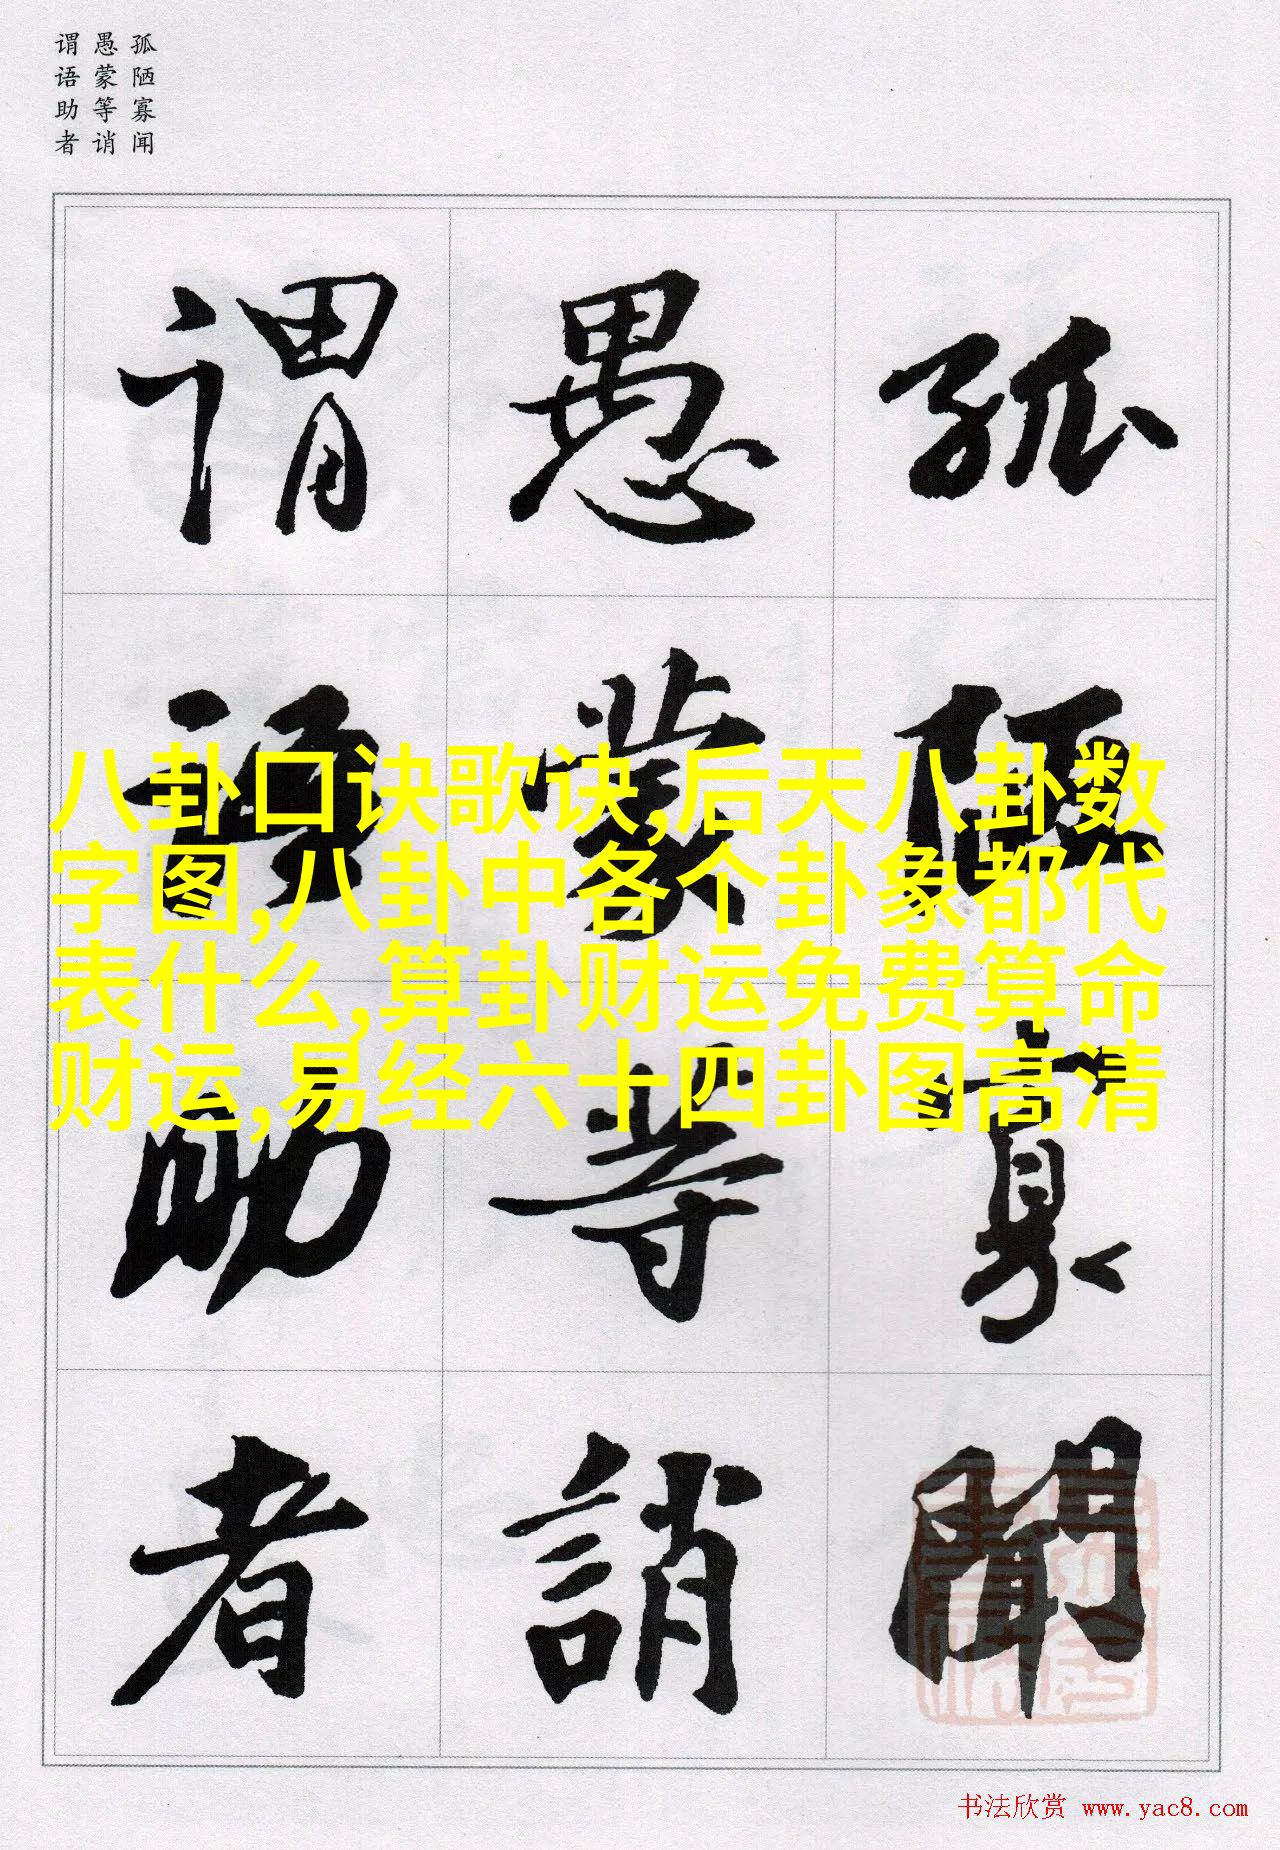 孤陋寡闻
愚蒙等诮
谓语助者
孤陋寡聞
愚蒙等誚
谓语助者
八卦口诀歌诀,后天八卦数
字图,八卦中各个卦象都代
表什么,算卦财运免费算命
财运,易经六十四卦图高清
书法欣赏 www.yac8.com